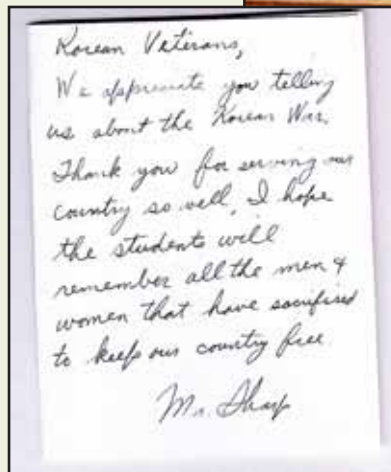 Korean Veterans,
We appreciate you telling
us about the Korean War.
Thank you for serving our
country so well, I hope
the students will
remember all the men &
women that have sacrifised
to keep our country free.
Mr. Sharp